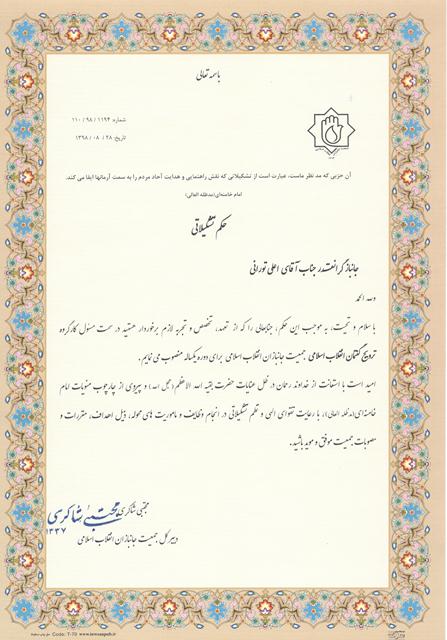 باسمه تعالی
شماره: ۱۱۹۴ / ۹۸ / ۱۱۰
تاریخ: ۲۸ / ۰۸ / ۱۳۹۸
آن حزبی که مد نظر ماست، عبارت است از تشکیلاتی که نقش راهنمایی و هدایت آحاد مردم را به سمت آرمانها ایفا می کند.
امام خامنه‌ای(مدظله العالی)
حکم تشکیلاتی
جانباز گرانقدر جناب آقای اعلی تورانی
وله الحمد
با سلام و تحیت، به موجب این حکم، جنابعالی را که از تعهد، تخصص و تجربه لازم برخوردار هستید در سمت مسئول کارگروه
ترویج گفتمان انقلاب اسلامی جمعیت جانبازان انقلاب اسلامی برای دوره یکساله منصوب می نمایم.
امید است با استعانت از خداوند رحمان در ظل عنایات حضرت بقیه الله الاعظم(عجل الله) و پیروی از چارچوب منویات امام
خامنه‌ای(مدظله العالی)، با رعایت تقوای الهی و نظم تشکیلاتی در انجام وظایف و ماموریت های محوله، ذیل اهداف، مقررات و
مصوبات جمعیت موفق و موید باشید.
مجتبی شاکری
مجتبی شاکری
۱۳۳۷
دبیرکل جمعیت جانبازان انقلاب اسلامی
Code: T-70